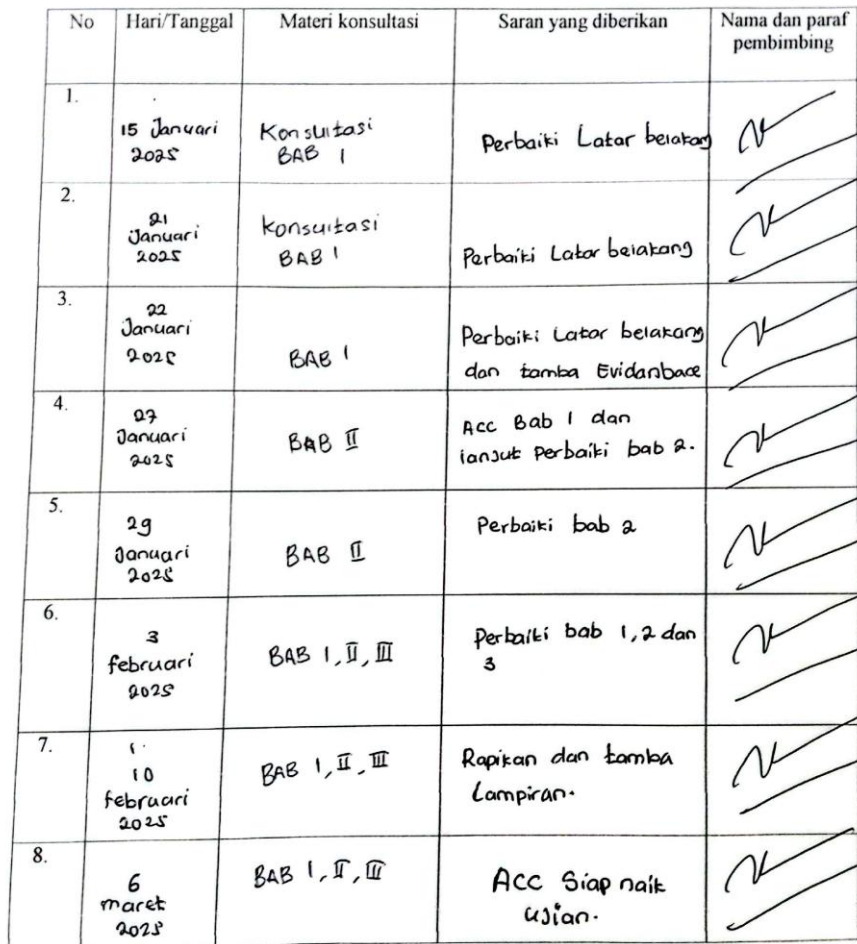 No Hari/Tanggal Materi konsultasi Saran yang diberikan Nama dan paraf
pembimbing
1.
15 Januari
2025
Konsultasi
BAB 1
Perbaiki Latar belakang
2.
21
Januari
2025
Konsultasi
BAB 1
Perbaiki Latar belakang
3.
22
Januari
2025
BAB 1
Perbaiki Latar belakang
dan tamba Evidanbace
4.
27
Januari
2025
BAB II
Acc Bab 1 dan
lanjut Perbaiki bab 2.
5.
29
Januari
2025
BAB II
Perbaiki bab 2
6.
3
februari
2025
BAB 1, II, III
Perbaiki bab 1, 2 dan
3
7.
10
februari
2025
BAB 1, II, III
Rapikan dan tamba
Lampiran.
8.
6
maret
2025
BAB 1, II, III
ACC Siap naik
Ujian.